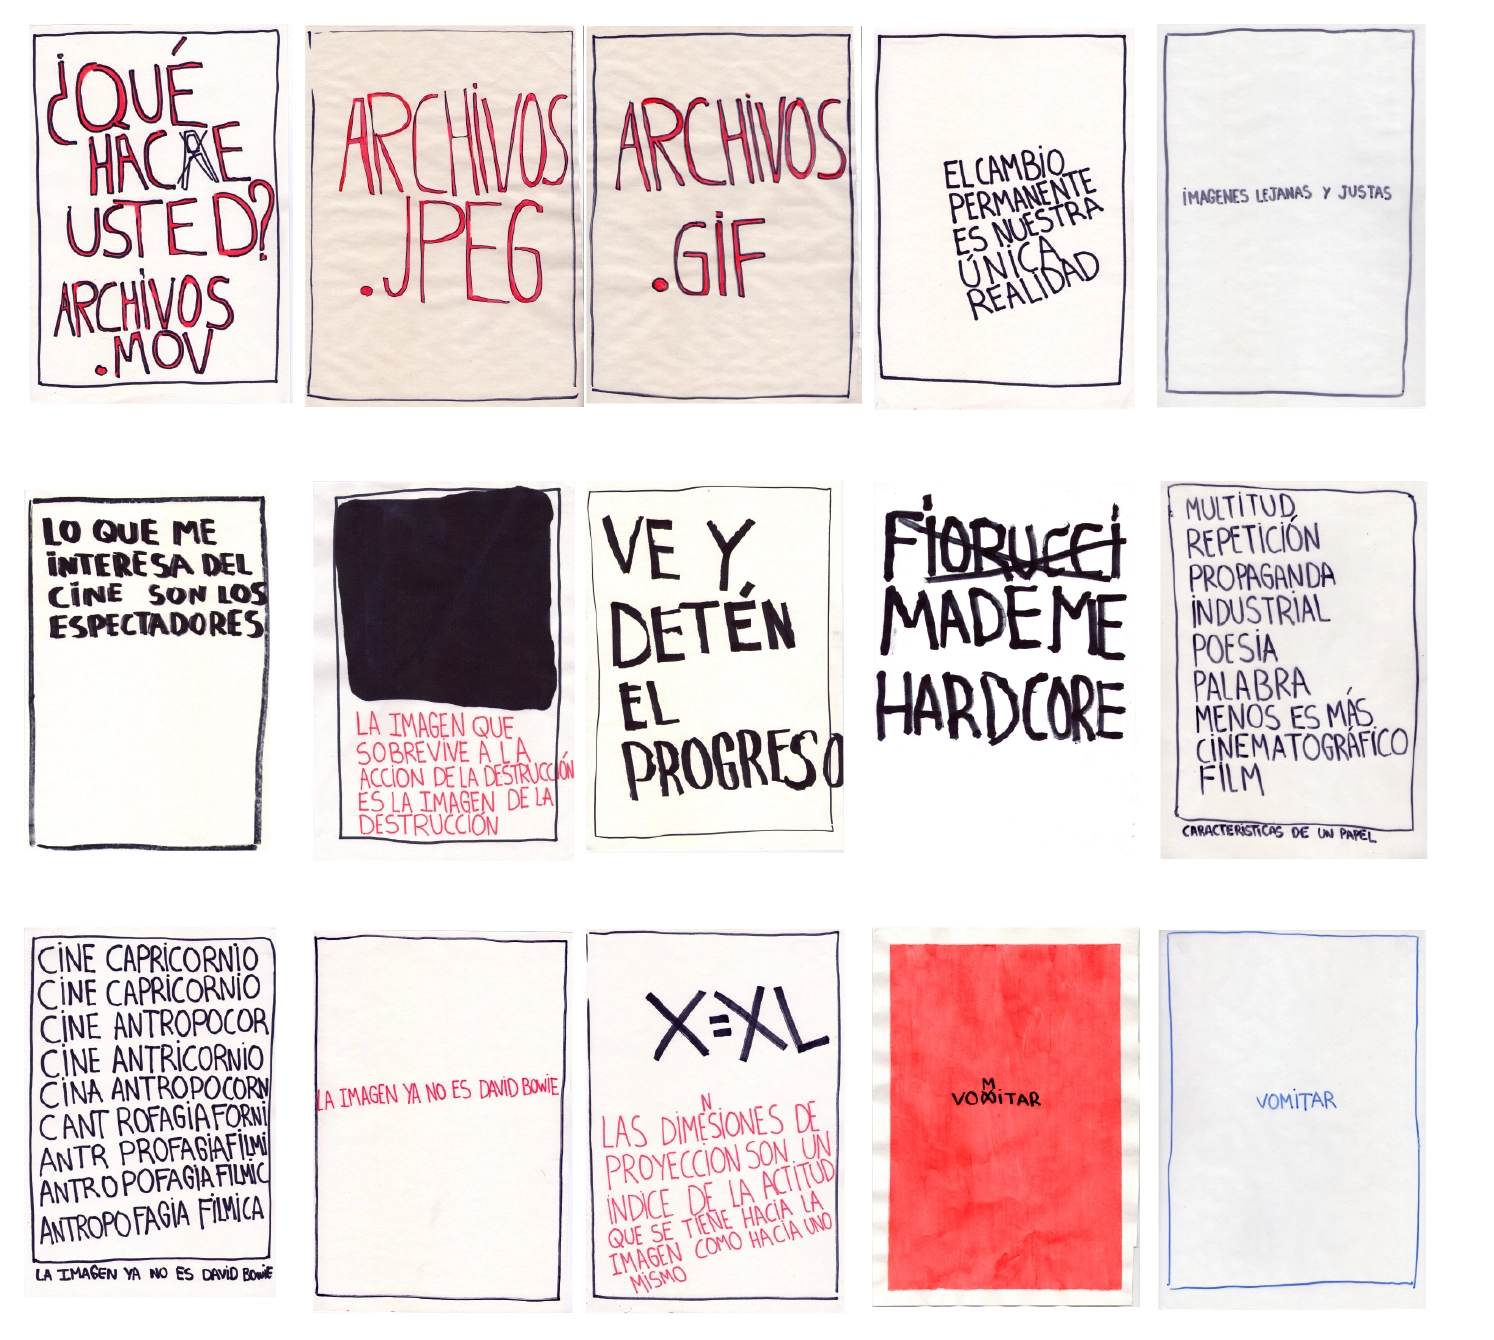 ¿QUÉ
HACAE
USTED?
ARCHIVOS
.MOV
ARCHIVOS
.JPEG
ARCHIVOS
.GIF
EL CAMBIO
PERMANENTE
ES NUESTRA
ÚNICA
REALIDAD
IMAGENES LEJANAS Y JUSTAS
LO QUE ME
INTERESA DEL
CINE SON LOS
ESPECTADORES
LA IMAGEN QUE
SOBREVIVE A LA
ACCION DE LA DESTRUCCIÓN
ES LA IMAGEN DE LA
DESTRUCCIÓN
VE Y
DETÉN
EL
PROGRESO
FIORUCCI
MADE ME
HARDCORE
MULTITUD
REPETICIÓN
PROPAGANDA
INDUSTRIAL
POESIA
PALABRA
MENOS ES MÁS
CINEMATOGRÁFICO
FILM
CARACTERISTICAS DE UN PAPEL
CINE CAPRICORNIO
CINE CAPRICORNIO
CINE ANTROPOCOR
CINE ANTRICORNIO
CINA ANTROPOCORN
CANT ROFAGIA FORNI
ANTR PROFAGIA FILMI
ANTRO POFAGIA FILMIC
ANTROPOFAGIA FILMICA
LA IMAGEN YA NO ES DAVID BOWIE
LA IMAGEN YA NO ES DAVID BOWIE
X=XL
N
LAS DIMESIONES DE
PROYECCION SON UN
INDICE DE LA ACTITUD
QUE SE TIENE HACIA LA
IMAGEN COMO HACIA UNO
MISMO
M
VONITAR
VOMITAR